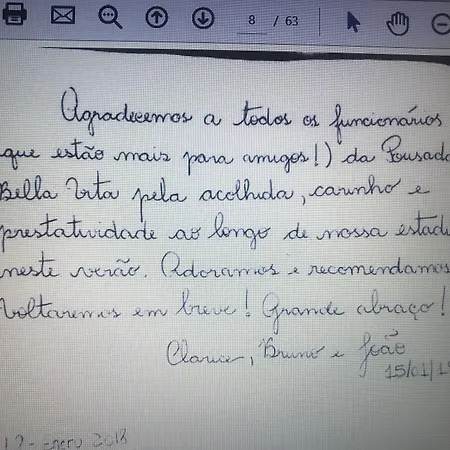 8 / 63
Agradecemos a todos os funcionários
que estão mais para amigos!) da Pousada
Bella Vista pela acolhida, carinho e
prestatividade ao longo de nossa estad
neste verão. Adoramos e recomendamos
Voltaremos em breve! Grande abraço!
Clarice, Bruno e João
15/01/1
2018